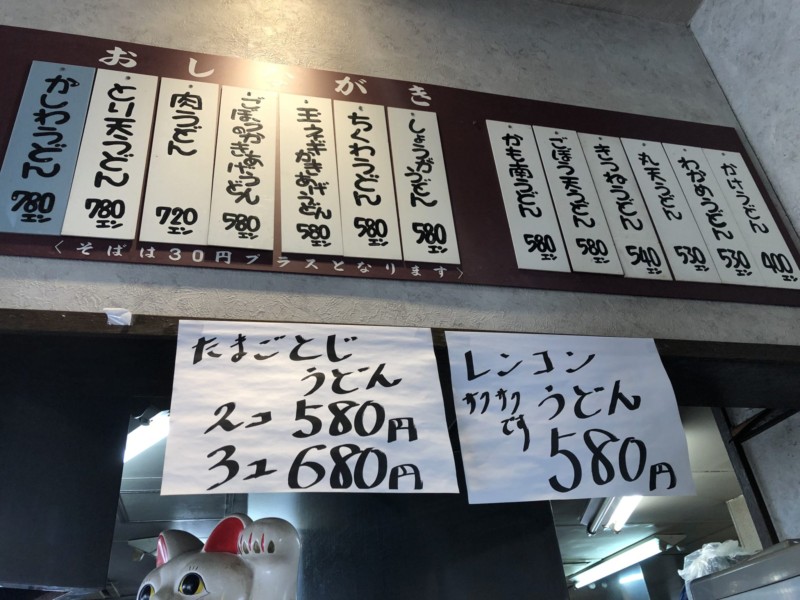 おしながき
かけうどん
400エン
わかめうどん
530エン
丸天うどん
530エン
きつねうどん
540エン
ごぼう天うどん
580エン
かも南うどん
580エン
しょうがうどん
580エン
ちくわうどん
580エン
玉ネギ
かきあげうどん
580エン
ごぼうの
かきあげうどん
580エン
肉うどん
720エン
とり天うどん
780エン
かしわうどん
780エン
〈そばは30円プラスとなります〉
たまごとじ
うどん
2コ 580円
3コ 680円
レンコン
サクサクです
うどん
580円